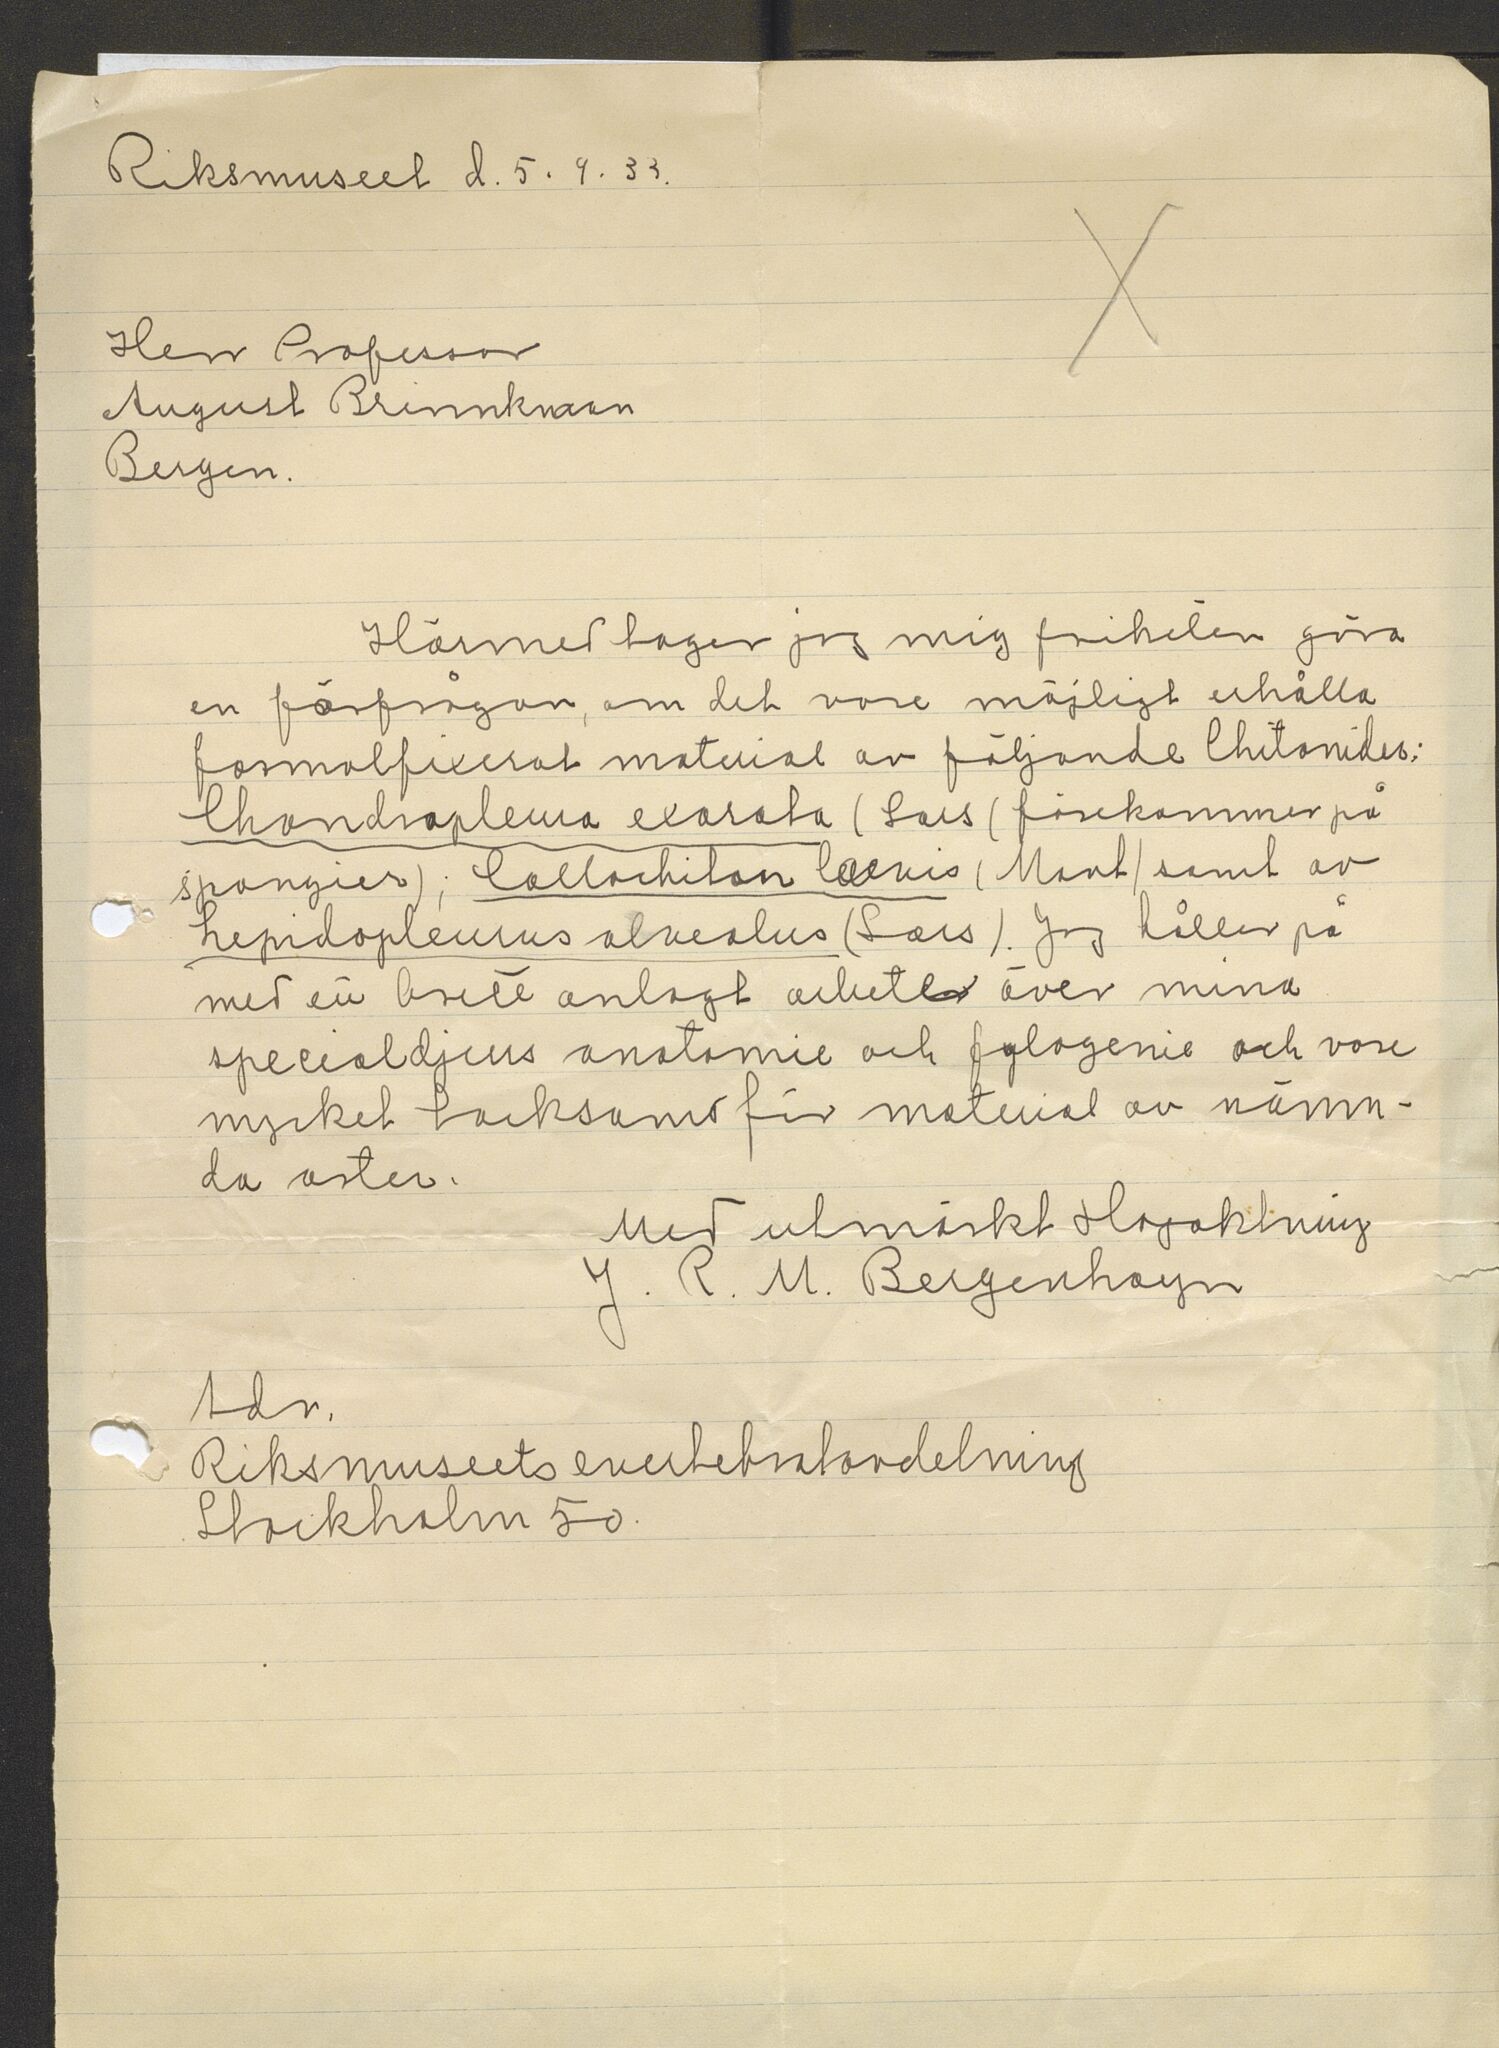 Riksmuseet d. 5. 9. 33.
Herr Professor
August Brinnkman
Bergen.
Härmed tager jag mig friheten göra
en förfrågan, om det vore möjligt erhålla
formolfixerat material av följande Chitonider:
Chondropleura exarata (Sars (förekommer på
spongier); Callochiton laevis (Mont) samt av
Lepidopleurus alveolus (Sars). Jag håller på
med ett brett anlagt arbete över mina
specialdjurs anatomie och fylogenie och vore
mycket tacksam för material av nämn-
da arter.
Med utmärkt Högaktning
J. R. M. Bergenhayn
Adr.
Riksmuseets evertebratavdelning
Stockholm 50.